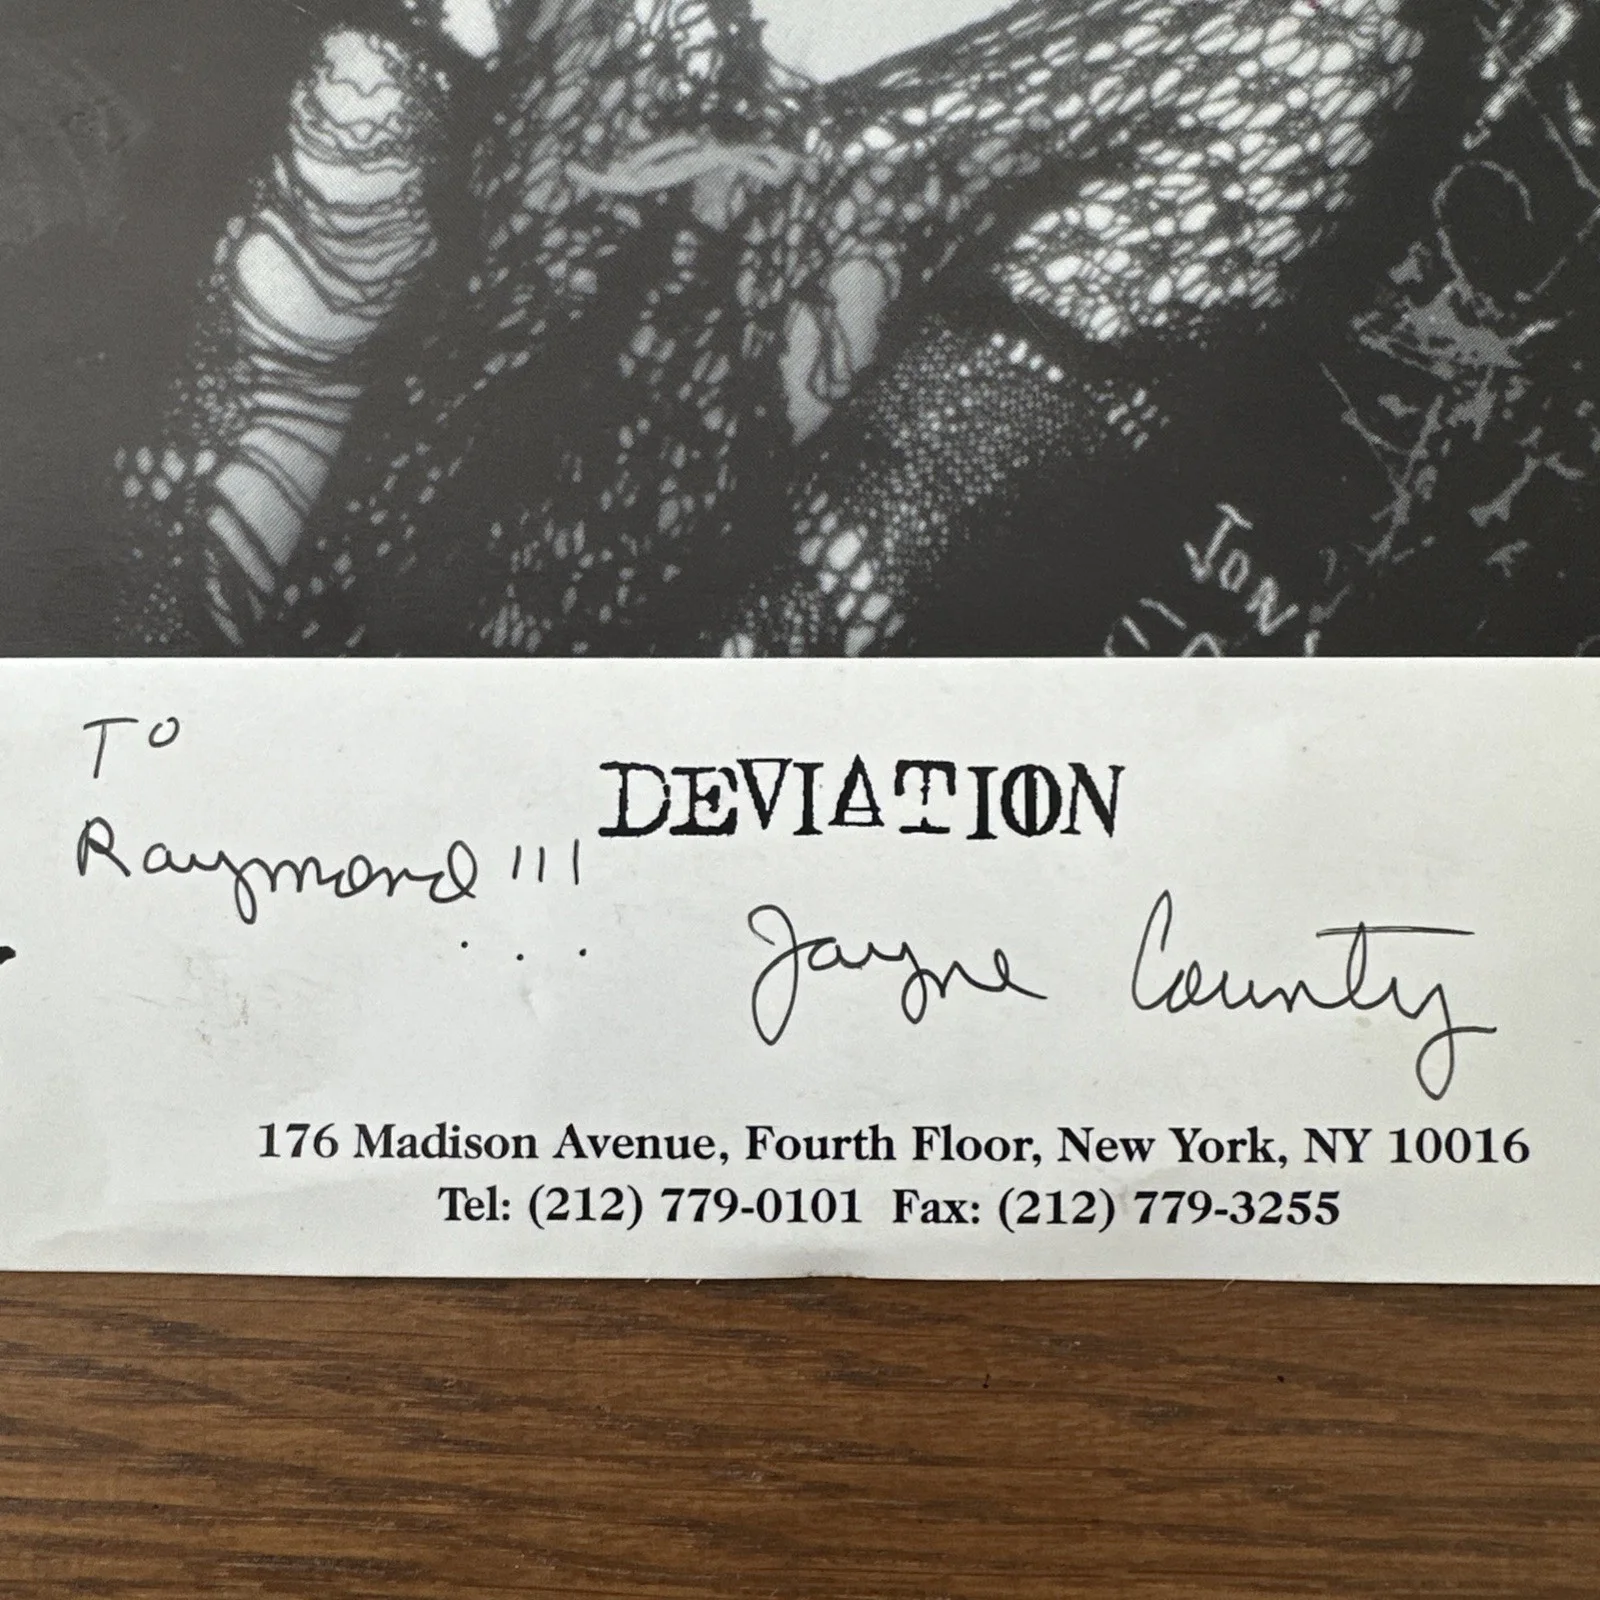 JON
To
Raymond!!!
DEVIATION
Jayne County
176 Madison Avenue, Fourth Floor, New York, NY 10016
Tel: (212) 779-0101 Fax: (212) 779-3255